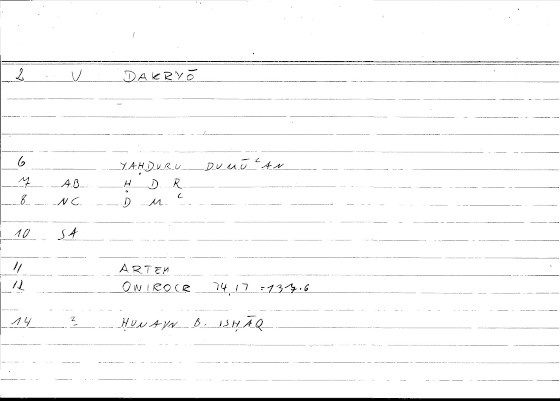 2 V DAKRYŌ
6 YAḤDURU DUMŪʿAN
7 AB Ḥ D R
8 NC D M ʿ
10 SA
11 ARTEM
12 ONIROCR 14,17 = 137.6
14 2 ḤUNAYN B. ISḤĀQ